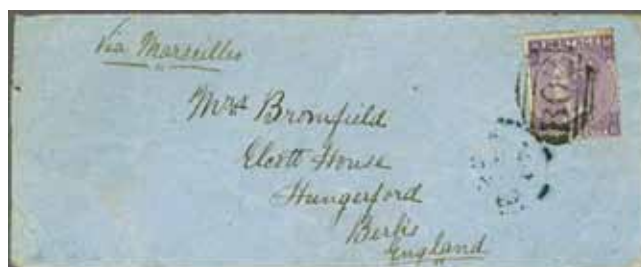 Via Marseilles
Mrs Bromfield
Elcott House
Hungerford
Berks
England